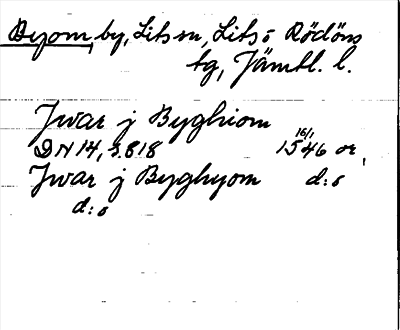 Byom, by, Lits sn, Lits o Rödöns
tg, Jämtl. l.
Jwar j Byghiom
DN 14, s. 818 16/1 1546 or.,
Jwar j Byghyom d:o
d:o